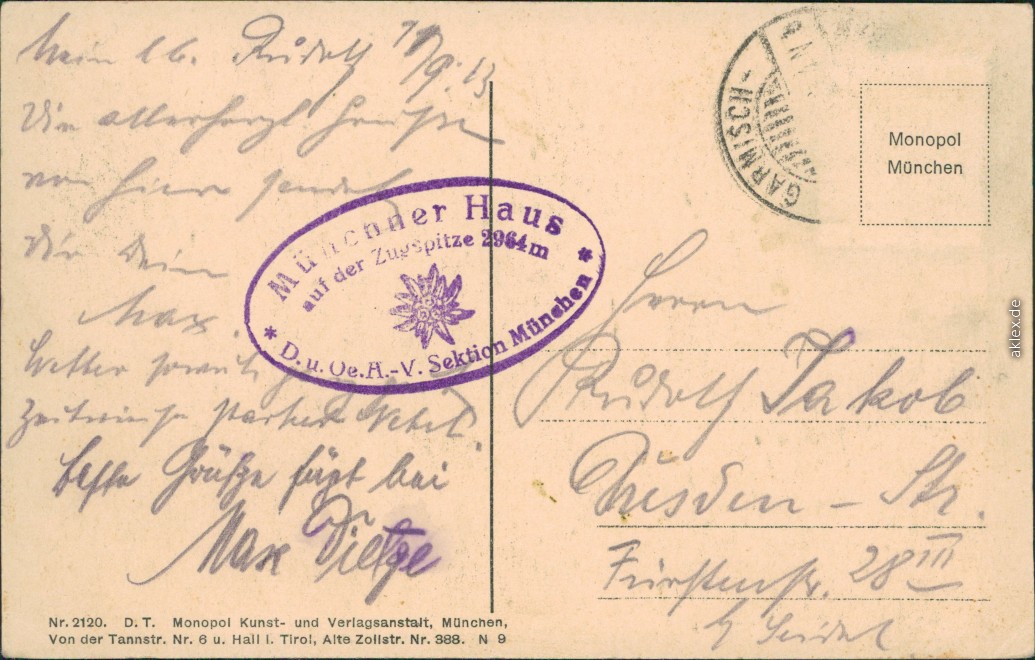 Mein lb. Rudolf 7/9.13
Die allerherzl. Grüße
von hier sendet
Dir Dein
Max.
Wetter
Zeitweise starker Nebel.
beste Grüße fügt bei
Max Dietze
Münchner Haus
auf der Zugspitze 2964m
* D. u. Oe. A.-V. Sektion München *
GARMISCH-
Monopol
München
Herrn
Rudolf Jakob
Dresden - Str.
Fürstenstr. 28 III
b/ Seidel
Nr. 2120. D. T. Monopol Kunst- und Verlagsanstalt, München,
Von der Tannstr. Nr. 6 u. Hall i. Tirol, Alte Zollstr. Nr. 388. N 9
aklex.de